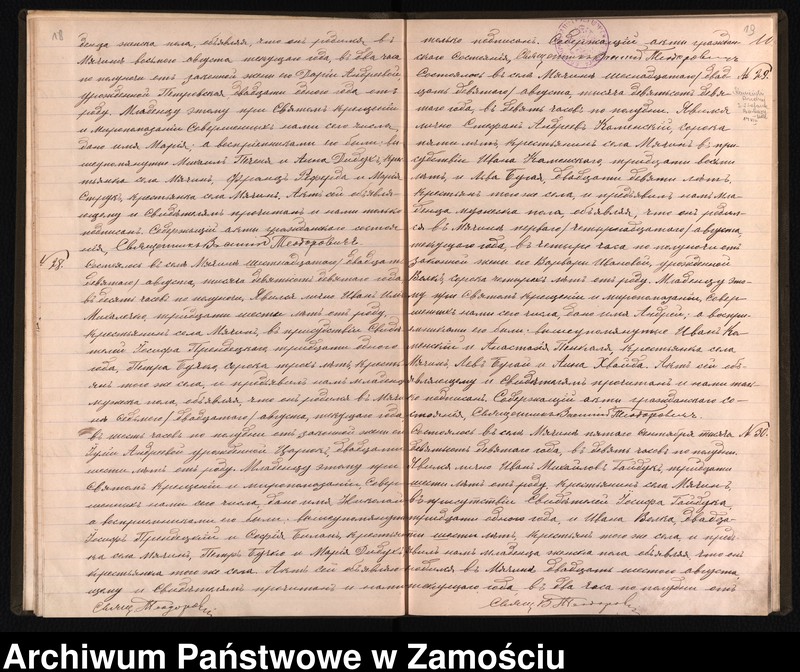 18
денца женска пола, объявляя, что онъ родился въ
Мячинѣ восьмого августа текущаго года, въ два часа
по полуночи отъ законной жены его Дарiи Андреевой
урожденной Петровской, двадцати одного года отъ
роду. Младенцу этому при Святомъ крещенiи
и миропомазанiи Совершенныхъ нами сего числа,
дано имя Марiя, а воспрiемниками его были: вы
шеупомянутые Михаилъ и Анна Дидукъ, крес
тьянка села Мячинъ, и Марiя
крестьянка села Мячинъ. Актъ сей объявля-
ющему и Свидѣтелямъ прочитанъ и нами только
подписанъ. Содержащiй акты гражданскаго состоя
нiя, Священникъ Василiй Теодоровичъ
28.
Состоялось въ селѣ Мячинѣ шестнадцатаго /двадцать
девятаго/ августа, тысяча девятьсотъ девятаго года
въ десять часовъ по полуночи. Явился лично Иванъ
Михалечко, тридцати шести лѣтъ отъ роду,
крестьянинъ села Мячинъ, въ присутствiи Свидѣ
телей Iосифа тридцати одного
года, Петра Бучко, сорока трехъ лѣтъ, кресть
янъ того же села, и предъявилъ намъ младенца
мужска пола, объявляя, что онъ родился въ Мячинѣ
седьмого /двадцатаго/ августа, текущаго года
въ шесть часовъ по полудни отъ законной жены его
Юлiи Андреевой урожденной двадцати
шести лѣтъ отъ роду. Младенцу этому при
Святомъ крещенiи и миропомазанiи, Совер
шенныхъ нами сего числа, дано имя Николай
а воспрiемниками его были: вышеупомянутые
Iосифъ и Софiя крестьян
ка села Мячинъ, Петръ Бучко и Марiя Дидукъ
крестьянка того же села. Актъ сей объявляю
щему и Свидѣтелямъ прочитанъ и нами
Свящ. Теодорович
19
только подписанъ. Содержащiй акты граждан-
скаго Состоянiя, Священникъ Василiй Теодоровичъ
№ 29.
Состоялось въ селѣ Мячинѣ шестнадцатаго /двад
цать девятаго/ августа, тысяча девятьсотъ девя-
таго года, въ девять часовъ по полудни. Явился
лично Стефанъ Андреевъ Каменскiй, сорока
пяти лѣтъ, крестьянинъ села Мячинъ въ при-
сутствiи Ивана Каменскаго, тридцати восьми
лѣтъ, и Льва Бугая, двадцати девяти лѣтъ,
крестьянъ того же села, и предъявилъ намъ мла
денца мужска пола, объявляя, что онъ родил-
ся въ Мячинѣ перваго /четырнадцатаго/ августа,
текущаго года, въ четыре часа по полуночи отъ
законной жены его Варвары Ивановой, урожденной
Волкъ, сорока четырехъ лѣтъ отъ роду. Младенцу это-
му при Святомъ крещенiи и миропомазанiи, Совер-
шенныхъ нами сего числа, дано имя Андрей, а воспрi-
емниками его были: вышеупомянутые Иванъ Ка-
менскiй и Анастасiя крестьянка села
Мячинъ, Левъ Бугай и Анна Хвайда. Актъ сей объ-
являющему и Свидѣтелямъ прочитанъ и нами толь
ко подписанъ. Содержащiй акты гражданскаго со-
стоянiя, Священникъ Василiй Теодоровичъ.
№ 30.
Состоялось въ селѣ Мячинѣ пятаго Сентября тысяча
девятьсотъ девятаго года, въ девять часовъ по полудни.
Явился лично Иванъ Михайловъ Гайдукъ, тридцати
шести лѣтъ отъ роду, крестьянинъ села Мячинъ,
въ присутствiи Свидѣтелей Iосифа Гайдука,
тридцати одного года, и Ивана Волка, двадца-
ти шести лѣтъ, крестьянъ того же села, и предъ
явилъ намъ младенца женска пола объявляя что онъ
родился въ Мячинѣ двадцать шестого августа
текущаго года, въ два часа по полудни отъ
Свящ. В. Теодорович
Archiwum Państwowe w Zamościu